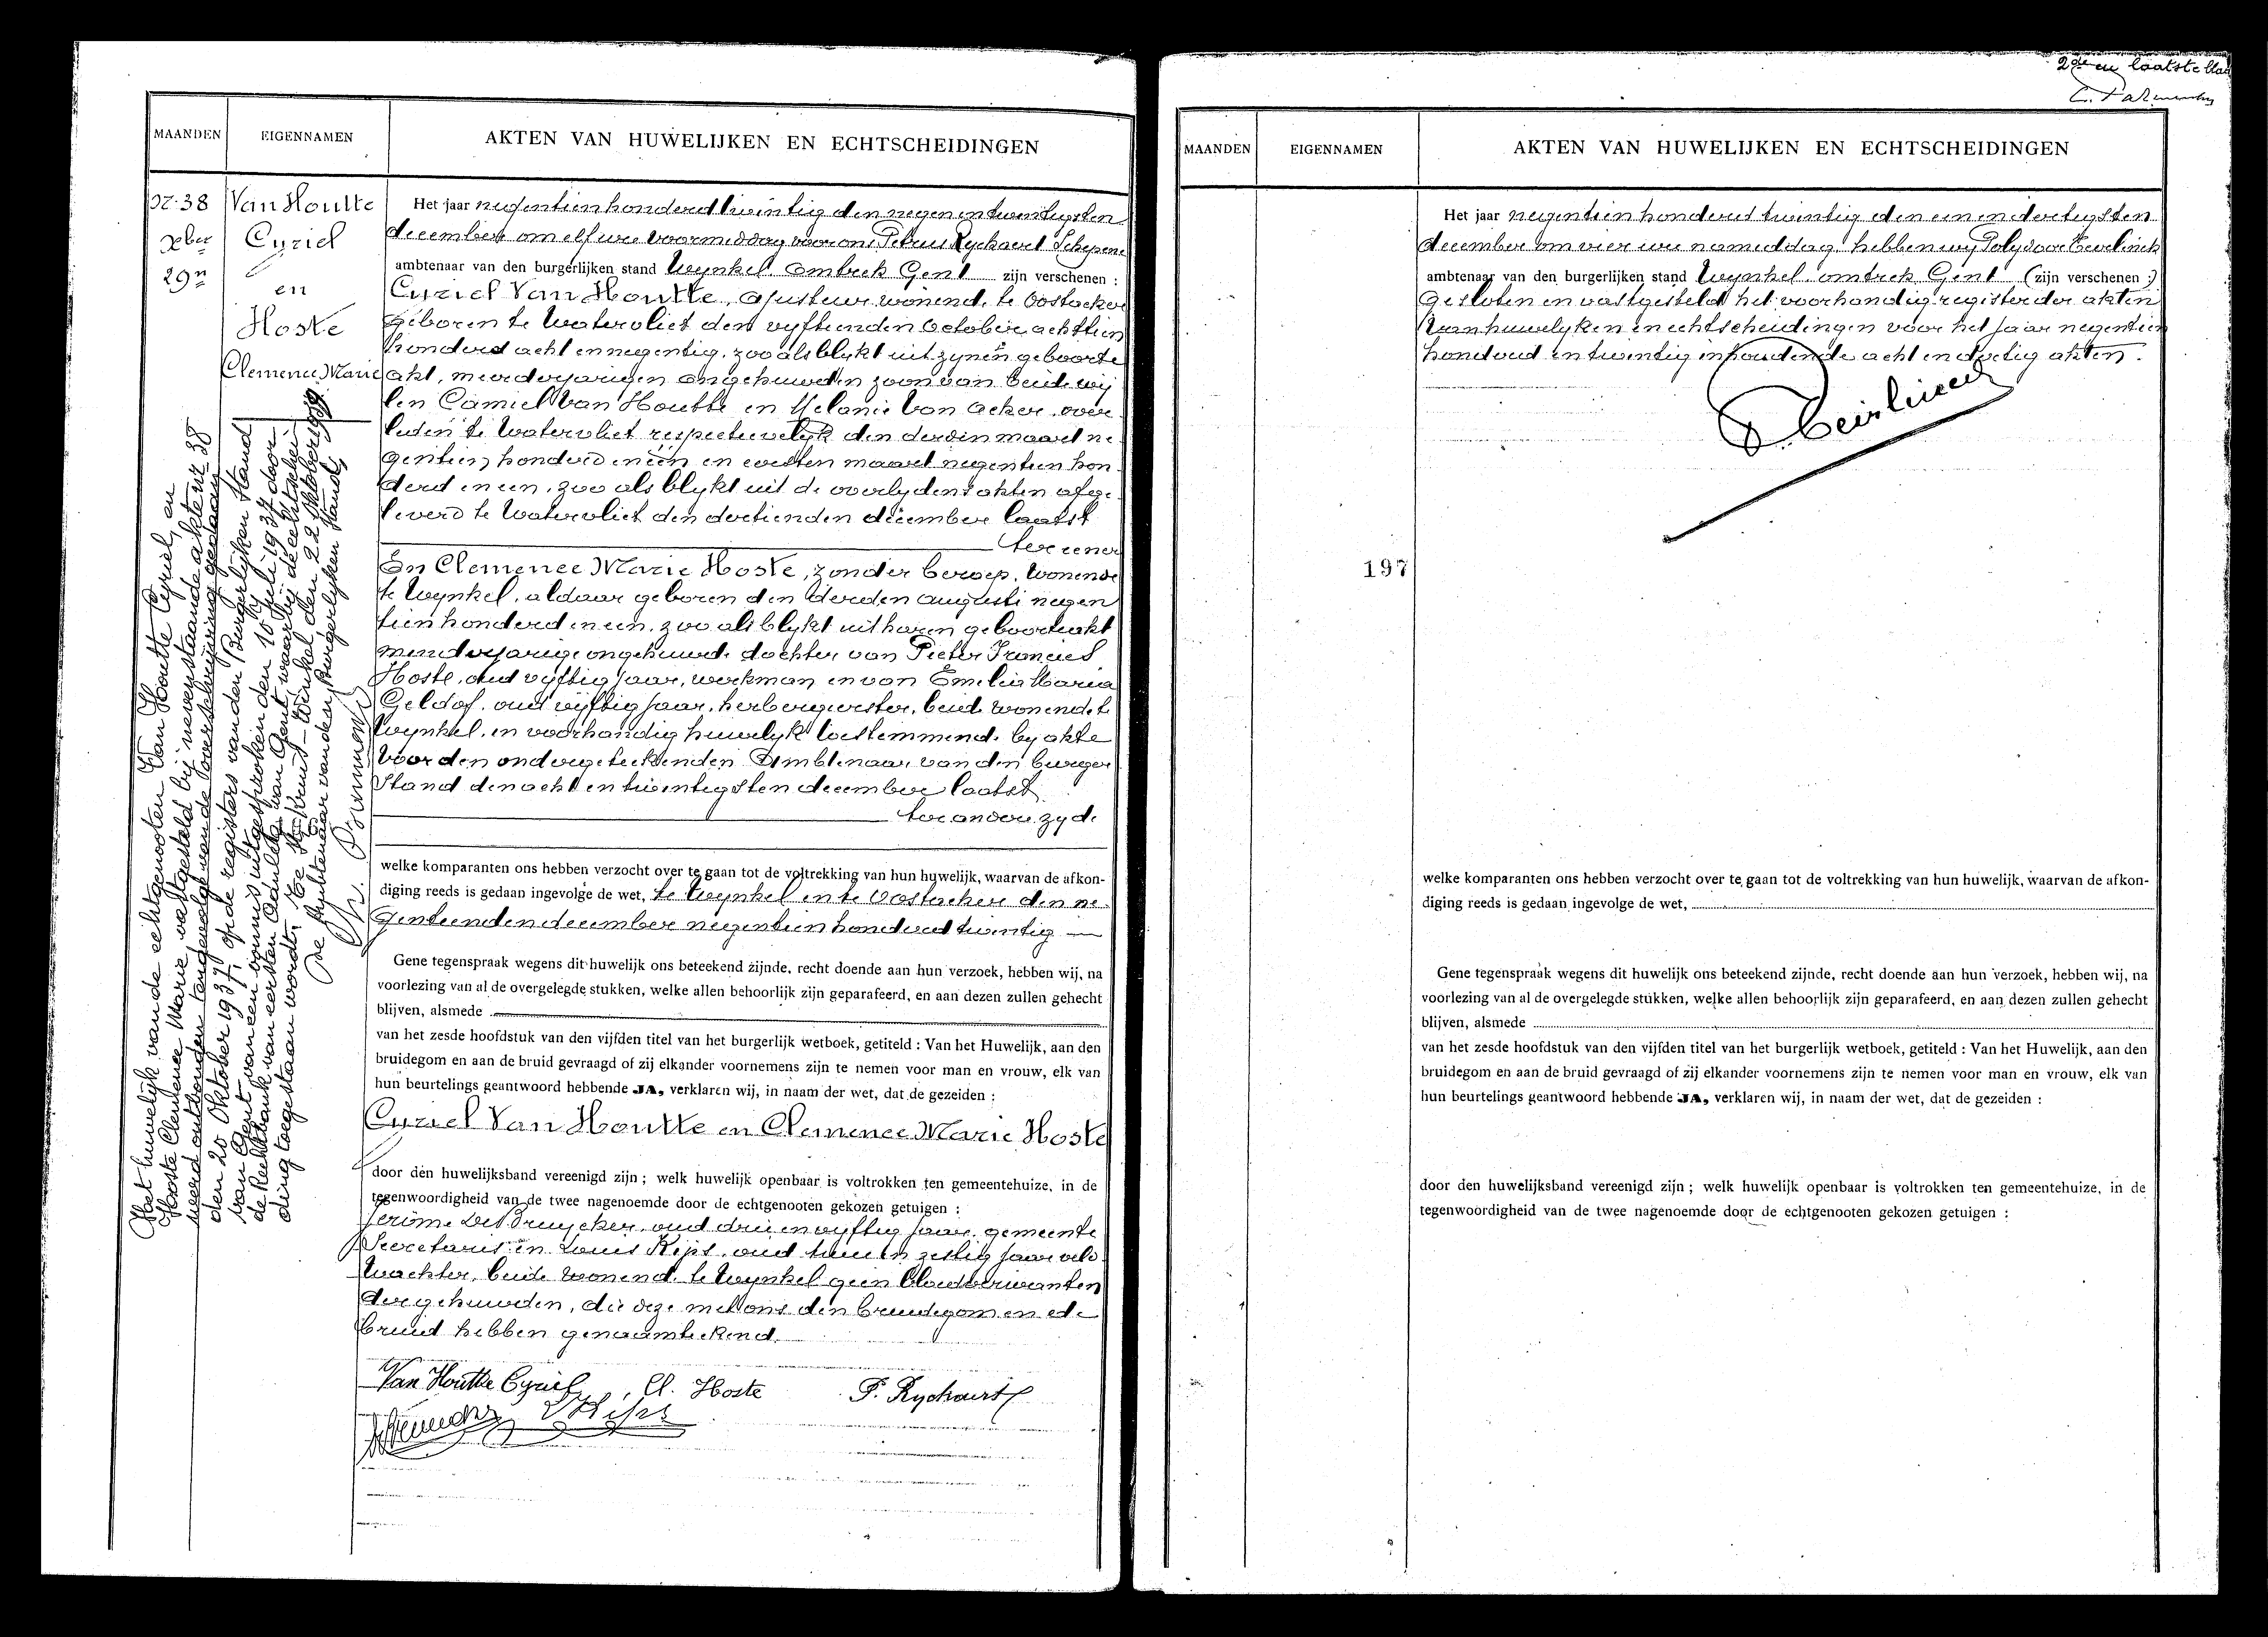 MAANDEN
EIGENNAMEN
AKTEN VAN HUWELIJKEN EN ECHTSCHEIDINGEN
Nr. 38
Xber
29n
Van Houtte
Cyriel
en
Hoste
Clemence Marie
Het jaar negentien honderd twintig den negen en twintigsten
december om elf ure voormiddag voor ons Petrus Ryckaert Schepene
ambtenaar van den burgerlijken stand Wynkel omtrek Gent zijn verschenen :
Cyriel Van Houtte, ajusteur wonende te Oostacker
geboren te Watervliet den vyftienden October achttien
honderd acht en negentig, zoo als blykt uit zynen geboorte
akt, meerderjarigen ongehuwden zoon van beide wij
len Camiel Van Houtte en Melanie Van Acker, over
leden te Watervliet respectievelyk den derden maart ne
gentien honderd en een en eersten maart negentien hon
derd en een, zoo als blykt uit de overlydensakten afge
leverd te Watervliet den dertienden december laatst
ter eener
En Clemence Marie Hoste, zonder beroep, wonende
te Wynkel, aldaar geboren den derden augusti negen
tien honderd en een, zoo als blykt uit haren geboorteakt
meerderjarige ongehuwde dochter van Pieter Francies
Hoste, oud vyftig jaar, werkman en van Emelia Maria
Geldof, oud vijftig jaar, herbergierster, beide wonende te
Wynkel, in voorhandig huwelyk toestemmende by akte
voor den ondergeteekenden Ambtenaar van den burger
stand den acht en twintigsten december laatst
ter andere zyde
welke komparanten ons hebben verzocht over te gaan tot de voltrekking van hun huwelijk, waarvan de afkon-
diging reeds is gedaan ingevolge de wet, te Wynkel en te Oostacker den ne
gentienden december negentien honderd twintig
Gene tegenspraak wegens dit huwelijk ons beteekend zijnde, recht doende aan hun verzoek, hebben wij, na
voorlezing van al de overgelegde stukken, welke allen behoorlijk zijn geparafeerd, en aan dezen zullen gehecht
blijven, alsmede
van het zesde hoofdstuk van den vijfden titel van het burgerlijk wetboek, getiteld : Van het Huwelijk, aan den
bruidegom en aan de bruid gevraagd of zij elkander voornemens zijn te nemen voor man en vrouw, elk van
hun beurtelings geantwoord hebbende JA, verklaren wij, in naam der wet, dat de gezeiden :
Cyriel Van Houtte en Clemence Marie Hoste
door den huwelijksband vereenigd zijn ; welk huwelijk openbaar is voltrokken ten gemeentehuize, in de
tegenwoordigheid van de twee nagenoemde door de echtgenooten gekozen getuigen :
Jerôme De Bruycker, oud drie en vyftig jaar, gemeente
Secretaris en Louis Kips, oud twee en zestig jaar veld
wachter, beide wonende te Wynkel geen bloedverwanten
der gehuwden, die deze met ons den bruidegom en de
bruid hebben genaamteekend.
Van Houtte Cyriel, Cl. Hoste P. Ryckaert
L Kips
Het huwelijk van de echtgenooten Van Houtte Cyriel, en
Hoste Clemence Marie, vastgesteld bij nevenstaande akte nr 38
werd ontbonden tengevolge van de overschrijving gedaan
den 20 Oktober 1937, op de registers van den Burgerlijken Stand
van Gent van een vonnis uitgesproken den 10 Juli 1937 door
de Rechtbank van eersten Aanleg van Gent waarbij de echtschei
ding toegestaan wordt. Ste Kruis-Winkel den 22 Oktober 1937
De Ambtenaar van den Burgerlijken Stand,
2de en laatste blad
MAANDEN
EIGENNAMEN
AKTEN VAN HUWELIJKEN EN ECHTSCHEIDINGEN
Het jaar negentien honderd twintig den een en dertigsten
december om vier ure namiddag hebben wy Polydoor Eeirlinck
ambtenaar van den burgerlijken stand Wynkel omtrek Gent (zijn verschenen :)
gesloten en vastgesteld het voorhandig register der akten
van huwelyken en echtscheidingen voor het jaar negentien
honderd en twintig inhoudende acht en dertig akten.
197
welke komparanten ons hebben verzocht over te gaan tot de voltrekking van hun huwelijk, waarvan de afkon-
diging reeds is gedaan ingevolge de wet,
Gene tegenspraak wegens dit huwelijk ons beteekend zijnde, recht doende aan hun verzoek, hebben wij, na
voorlezing van al de overgelegde stukken, welke allen behoorlijk zijn geparafeerd, en aan dezen zullen gehecht
blijven, alsmede
van het zesde hoofdstuk van den vijfden titel van het burgerlijk wetboek, getiteld : Van het Huwelijk, aan den
bruidegom en aan de bruid gevraagd of zij elkander voornemens zijn te nemen voor man en vrouw, elk van
hun beurtelings geantwoord hebbende JA, verklaren wij, in naam der wet, dat de gezeiden :
door den huwelijksband vereenigd zijn ; welk huwelijk openbaar is voltrokken ten gemeentehuize, in de
tegenwoordigheid van de twee nagenoemde door de echtgenooten gekozen getuigen :